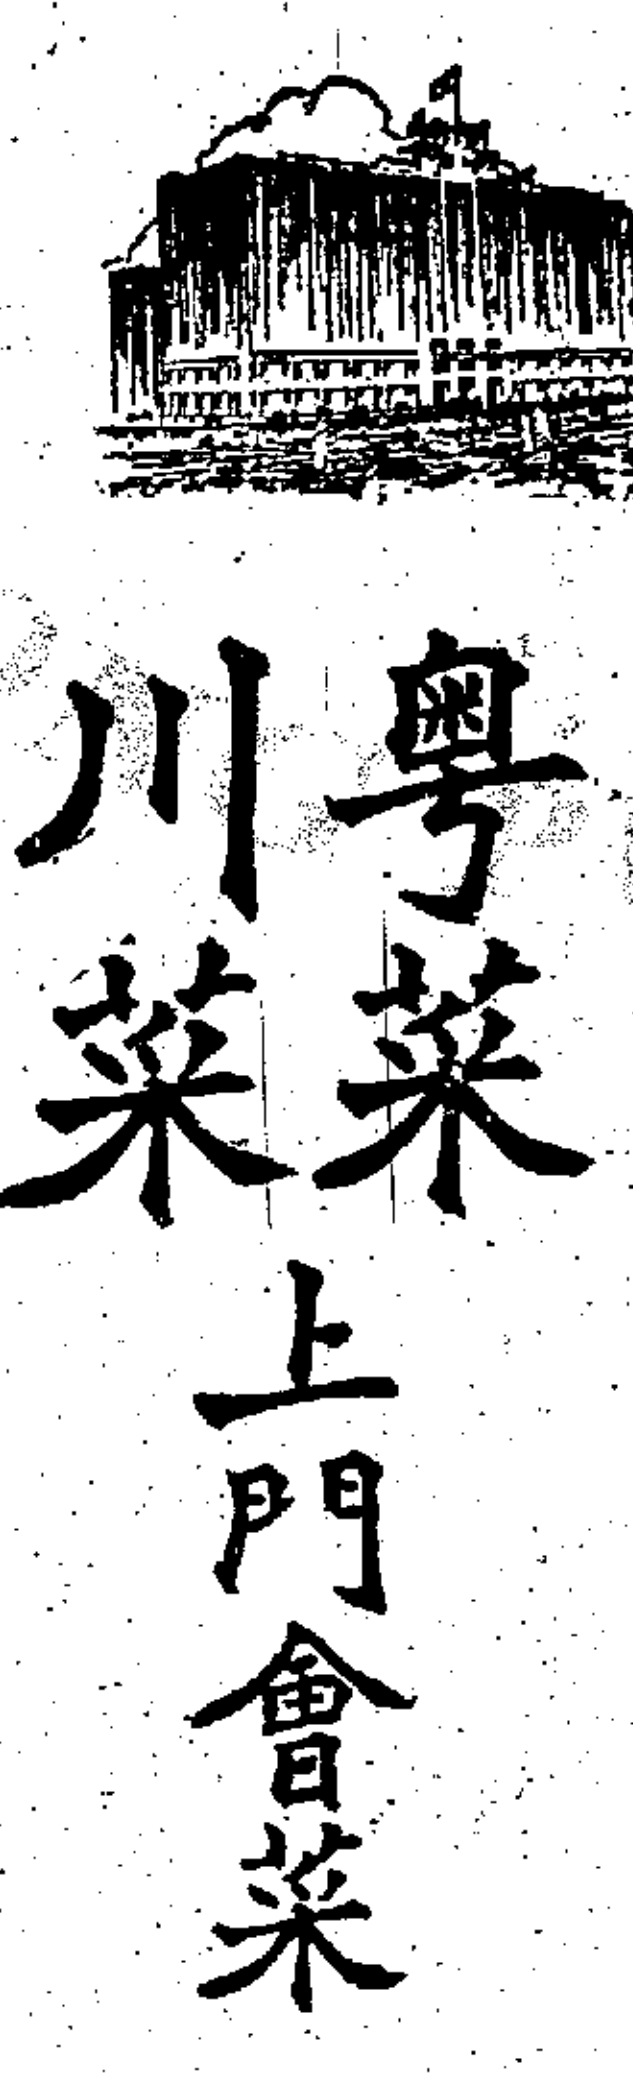 粤菜
川菜
上門會菜